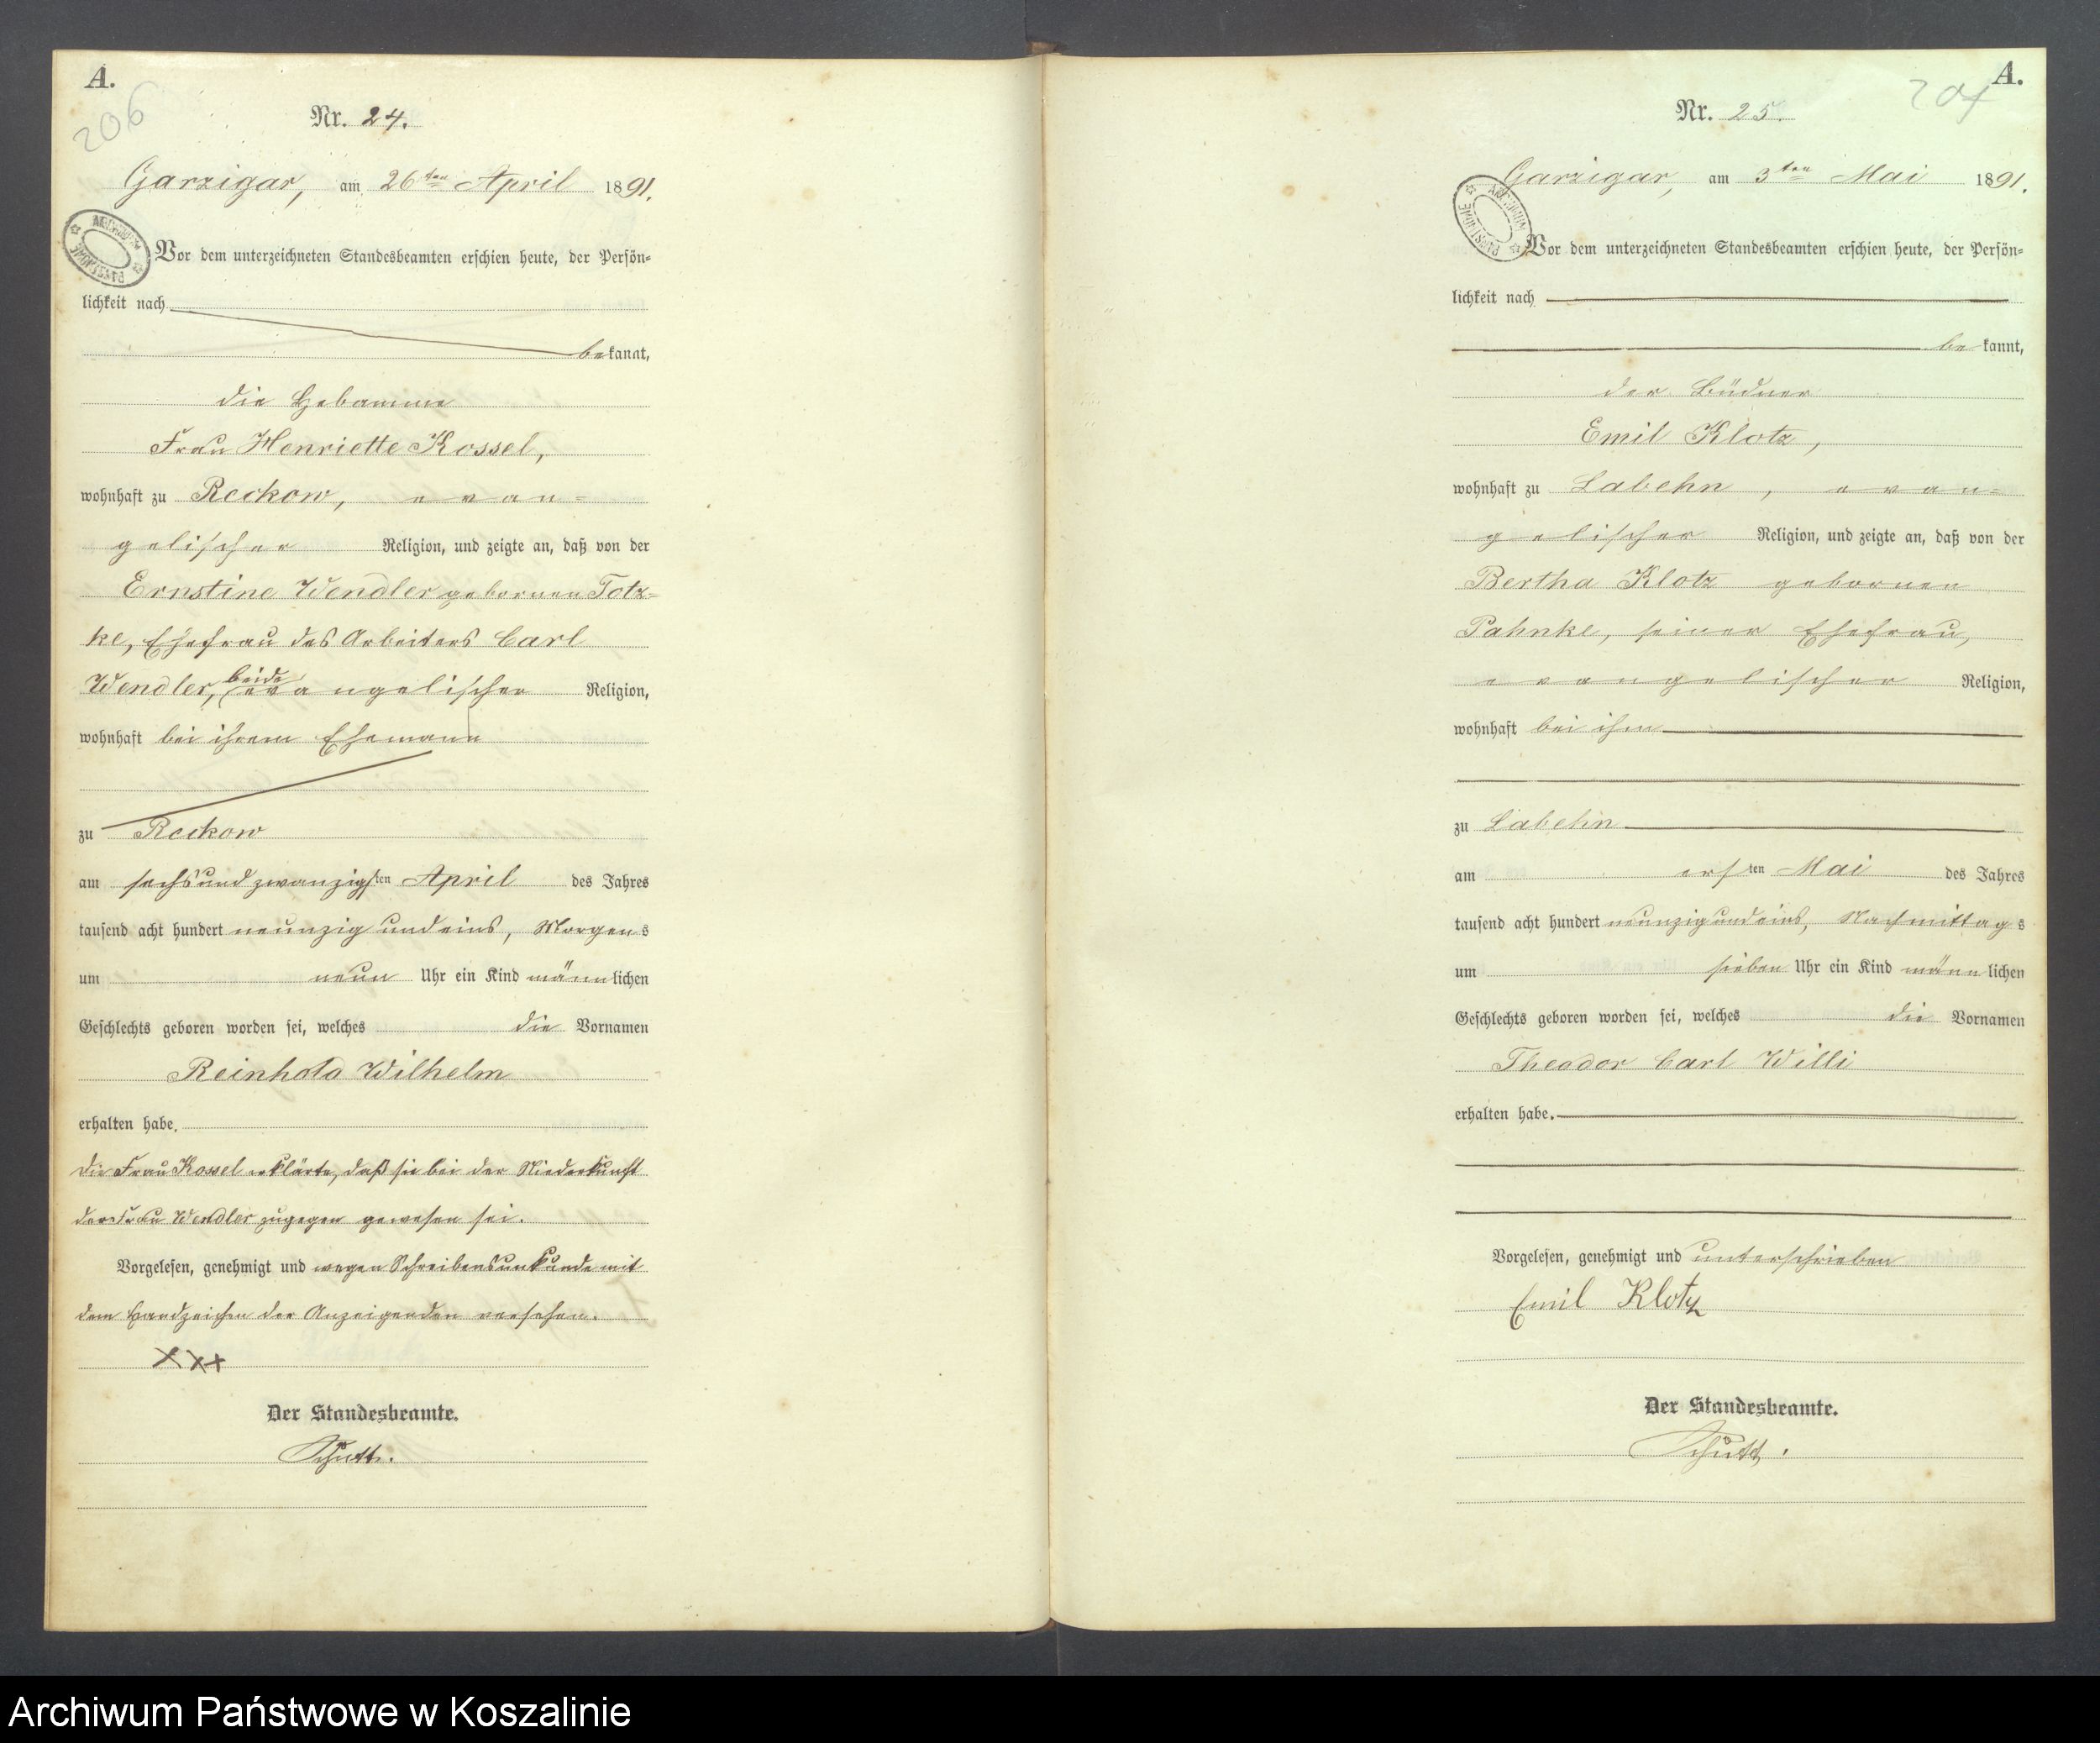 A.
206
Nr. 24.
Garzigar, am 26ten April 1891.
ARCHIWUM PAŃSTWOWE
Vor dem unterzeichneten Standesbeamten erschien heute, der Persön-
lichkeit nach
bekannt,
die Hebamme
Frau Henriette Kossel,
wohnhaft zu Reckow, evan-
gelischer Religion, und zeigte an, daß von der
Ernstine Wendler gebornen Totz-
ke, Ehefrau des Arbeiters Carl
Wendler, beide evangelischer Religion,
wohnhaft bei ihrem Ehemann
zu Reckow
am sechsundzwanzigsten April des Jahres
tausend acht hundert neunzig und eins, Morgens
um neun Uhr ein Kind männlichen
Geschlechts geboren worden sei, welches die Vornamen
Reinhold Wilhelm
erhalten habe.
Die Frau Kossel erklärte, daß sie bei der Niederkunft
der Frau Wendler zugegen gewesen sei.
Vorgelesen, genehmigt und wegen Schreibensunkunde mit
dem Handzeichen der Anzeigenden versehen.
XXX
Der Standesbeamte.
Schütt.
A.
207
Nr. 25.
Garzigar, am 3ten Mai 1891.
ARCHIWUM PAŃSTWOWE
Vor dem unterzeichneten Standesbeamten erschien heute, der Persön-
lichkeit nach
bekannt,
der Büdner
Emil Klotz,
wohnhaft zu Labehn, evan-
gelischer Religion, und zeigte an, daß von der
Bertha Klotz gebornen
Pahnke, seiner Ehefrau,
evangelischer Religion,
wohnhaft bei ihm
zu Labehn
am ersten Mai des Jahres
tausend acht hundert neunzig und eins, Nachmittags
um sieben Uhr ein Kind männlichen
Geschlechts geboren worden sei, welches die Vornamen
Theodor Carl Willi
erhalten habe.
Vorgelesen, genehmigt und unterschrieben
Emil Klotz
Der Standesbeamte.
Schütt.
Archiwum Państwowe w Koszalinie